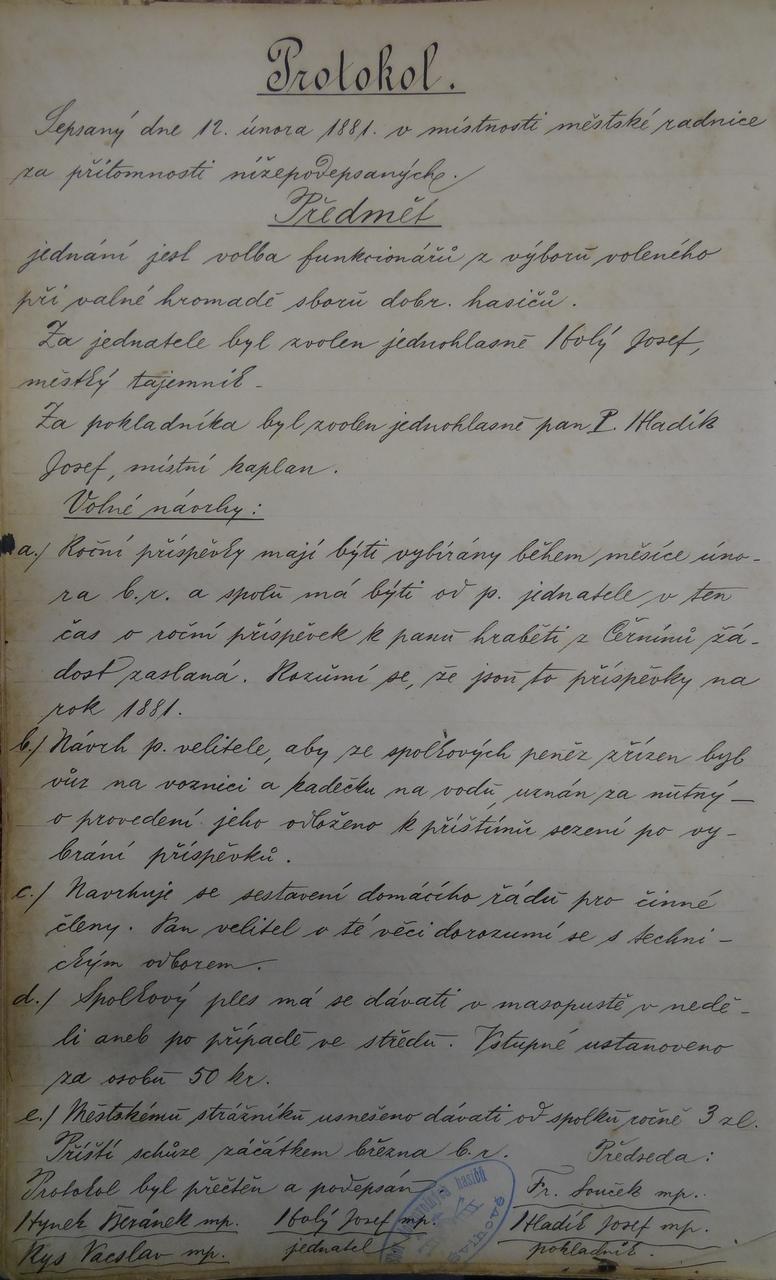 Protokol.
Sepsaný dne 12. února 1881. v místnosti městské radnice
za přítomnosti nížepodepsaných.
Předmět
jednání jest volba funkcionářů z výboru voleného
při valné hromadě sboru dobr. hasičů.
Za jednatele byl zvolen jednohlasně Holý Josef,
městký tajemník.
Za pokladníka byl zvolen jednohlasně pan P. Hladík
Josef, místní kaplan.
Volné návrhy:
a./ Roční příspěvky mají býti vybírány během měsíce úno-
ra b.r. a spolu má býti od p. jednatele v ten
čas o roční příspěvek k panu hraběti z Černínů žá-
dost zaslaná. Rozumí se, že jsou to příspěvky na
rok 1881.
b./ Návrh p. velitele, aby ze spolkových peněz zřízen byl
vůz na voznici a kadečku na vodu, uznán za nutný –
o provedení jeho odloženo k příštímu sezení po vy-
brání příspěvků.
c./ Navrhuje se sestavení domácího řádu pro činné
členy. Pan velitel o té věci dorozumí se s techni-
ckým odborem.
d./ Spolkový ples má se dávati v masopustě v nedě-
li aneb po případě ve středu. Vstupné ustanoveno
za osobu 50 kr.
e./ Městskému strážníku usnešeno dávati od spolku ročně 3 zl.
Příští schůze začátkem března b.r. Předseda:
Protokol byl přečtěn a podepsán Fr. Souček mp.
Hynek Beránek mp. Holý Josef mp. Hladík Josef mp.
Rys Vacslav mp. jednatel pokladník.
hasičů